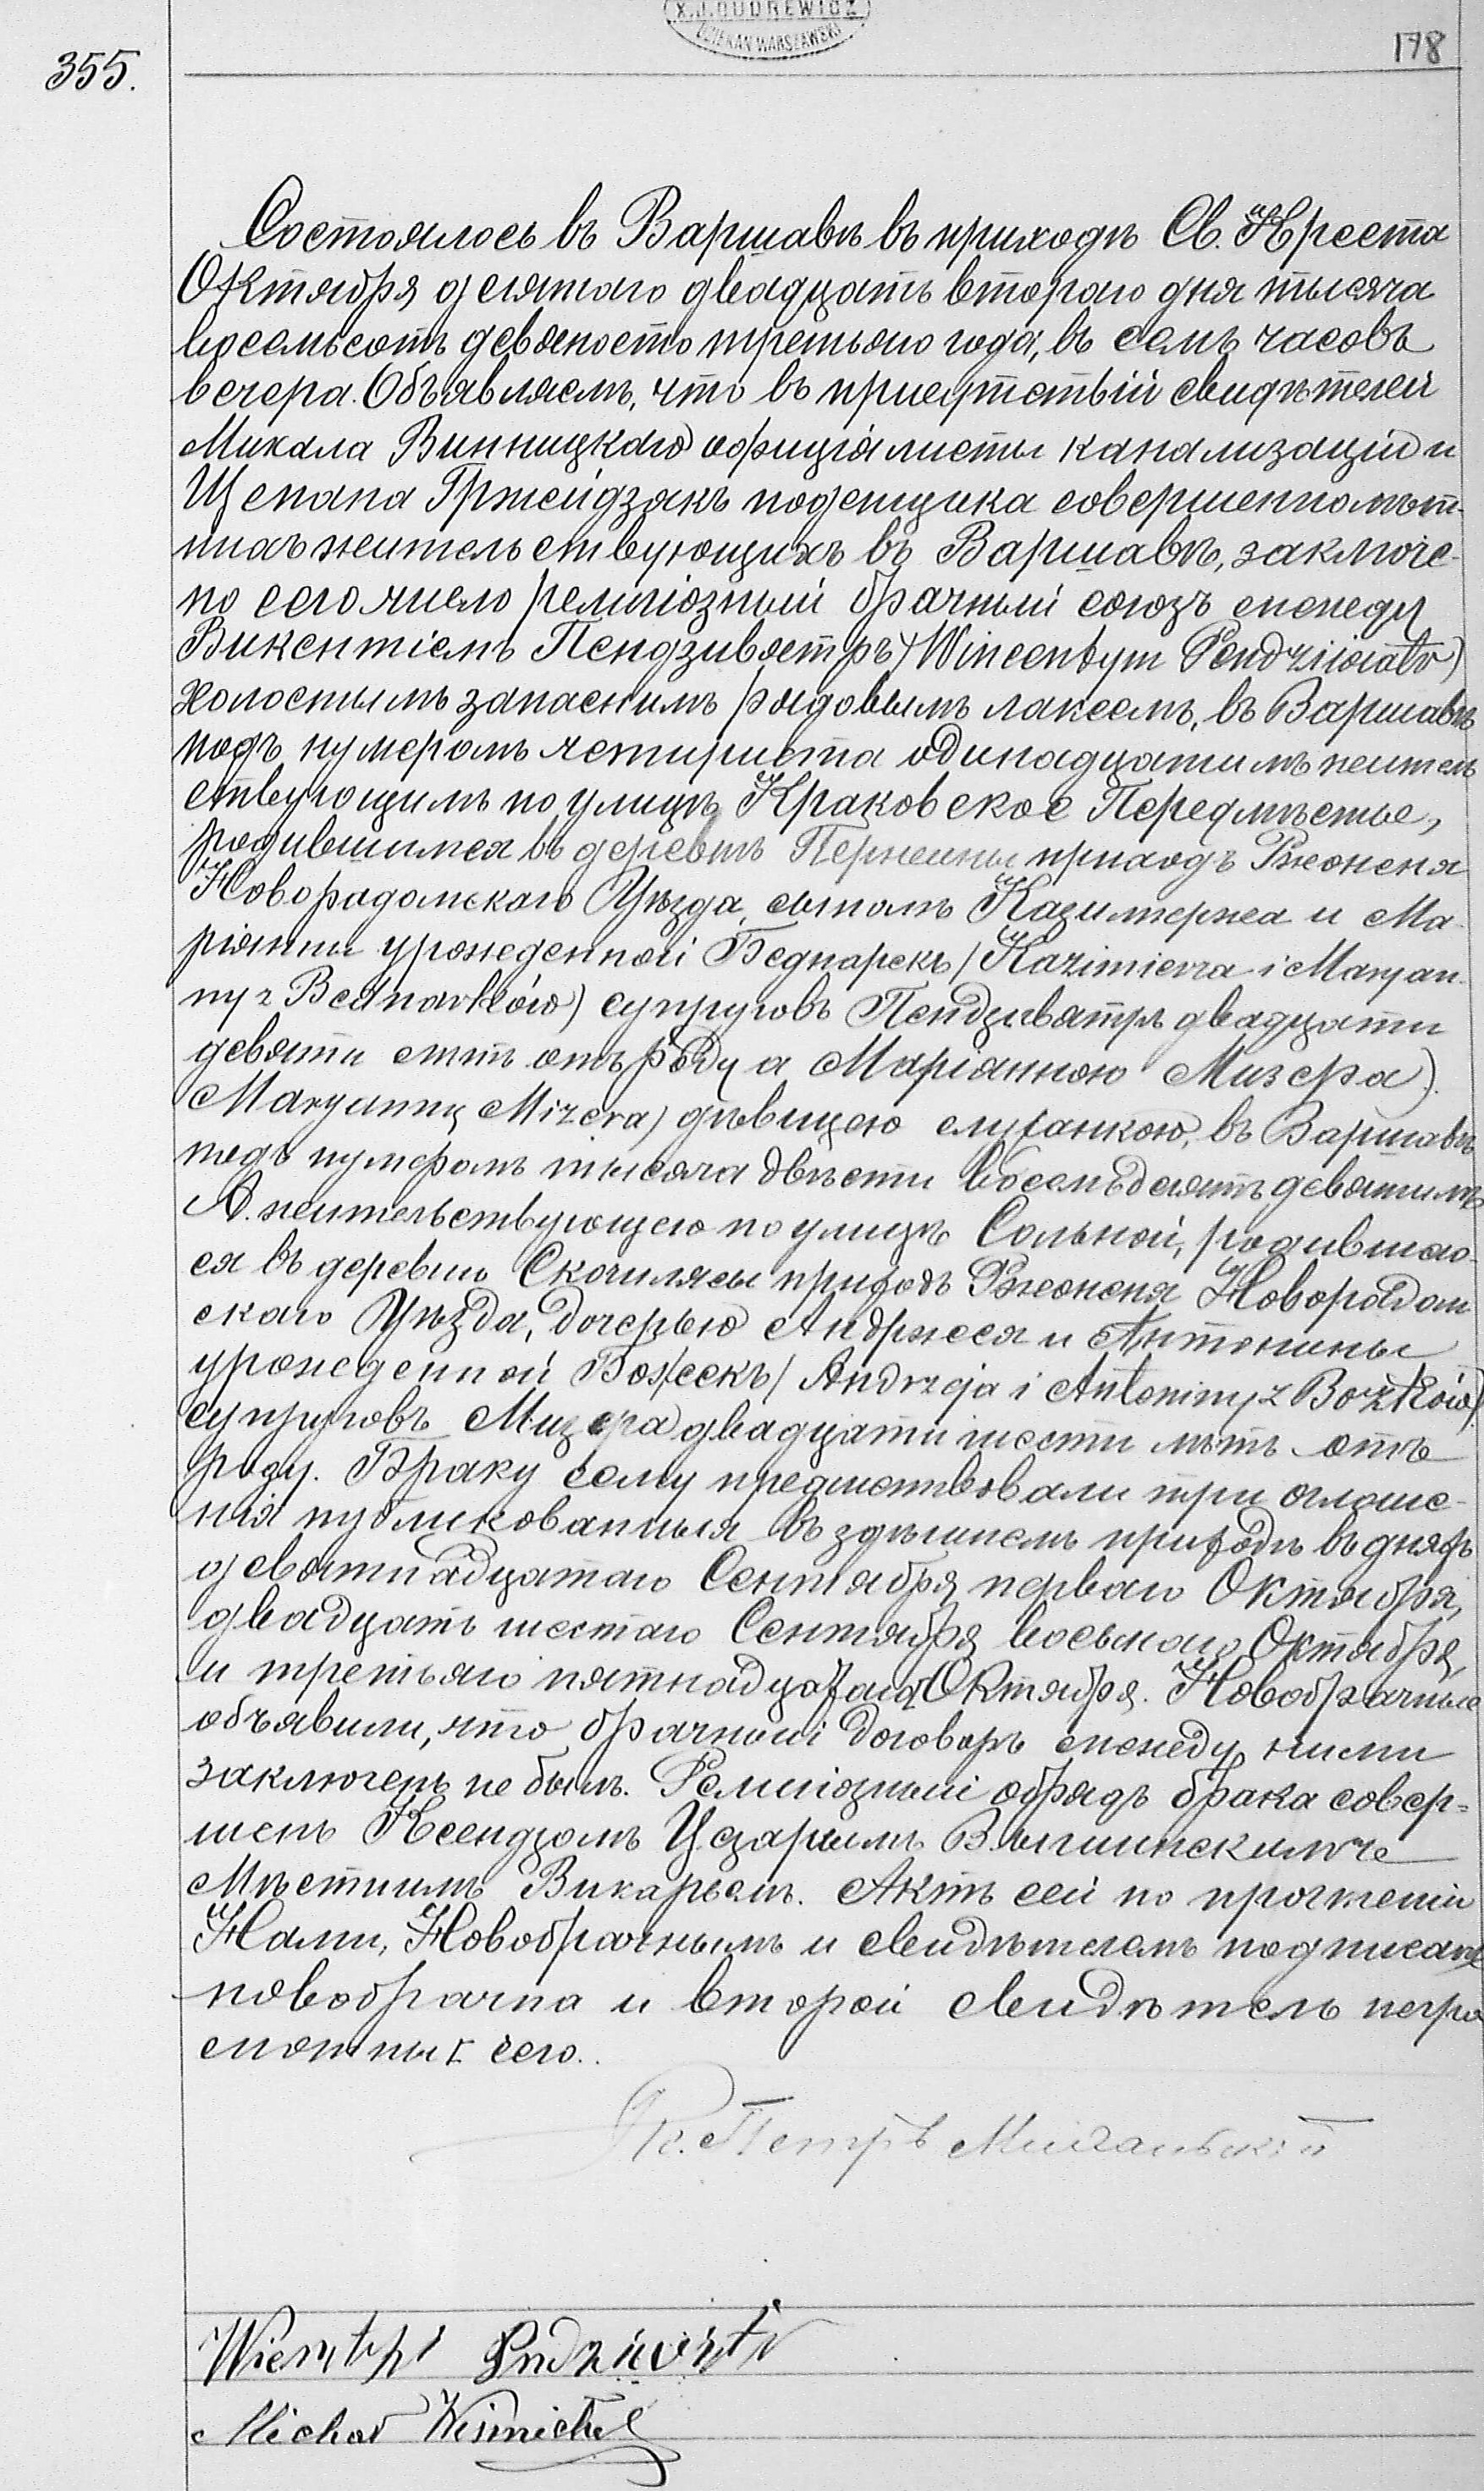 X.J.DUDREWICZ
DZIEKAN WARSZAWSKI
178
355.
Состоялось въ Варшавѣ въ приходѣ Св. Креста
Октября десятаго двадцать втораго дня тысяча
восемьсотъ девяносто третьяго года, въ семь часовъ
вечера. Объявляемъ, что въ присутствіи свидѣтелей
Михала Винницкаго официалисты канализаціи и
Щепана Гржейдзякъ поденщика совершеннолѣт-
нихъ жительствующихъ въ Варшавѣ, заключе-
но сего числа религіозный брачный союзъ между
Викентіемъ Пендзивятръ (Wincentym Pendziwiatr)
холостымъ запаснымъ рядовымъ лакеемъ, въ Варшавѣ
подъ нумеромъ четыриста одинадцатымъ житель
ствующимъ по улицѣ Краковское Передмѣстье,
родившимся въ деревнѣ приходъ Ржеженя
Новорадомскаго Уѣзда, сыномъ Казимержа и Ма-
ріанны урожденной Беднарекъ (Kazimierza i Maryan-
ny z Bednarków) супруговъ Пендзивятръ двадцати
девяти лѣтъ отъ роду а Маріанною Мизера)
Maryanną Mizera) дѣвицею служанкою, въ Варшавѣ
подъ нумеромъ тысяча двѣсти восемьдесятъ девятымъ
А. жительствующею по улицѣ Сольной, родившею-
ся въ деревнѣ приходъ Ржеженя Новорадом
скаго Уѣзда, дочерью Андржея и Антонины
урожденной Божекъ (Andrzeja i Antoniny z Bożków)
супруговъ Мизера двадцати шести лѣтъ отъ
роду. Браку сему предшествовали три оглаше-
нія публикованныя въ здѣшнемъ приходѣ въ дняхъ
девятнадцатаго Сентября перваго Октября,
двадцать шестаго Сентября восьмаго Октября,
и третьяго пятнадцатаго Октября. Новобрачные
объявили, что брачный договоръ между ними
заключенъ не былъ. Религіозный обрядъ брака совер-
шенъ Ксендзомъ Цезаримъ
Мѣстнымъ Викарьемъ. Актъ сей по прочтеніи
Нами, Новобрачнымъ и свидѣтелемъ подписанъ
новобрачна и второй свидѣтель негра
мотны
Кс. Петръ
Pendziwiatr
Michał Winnicki